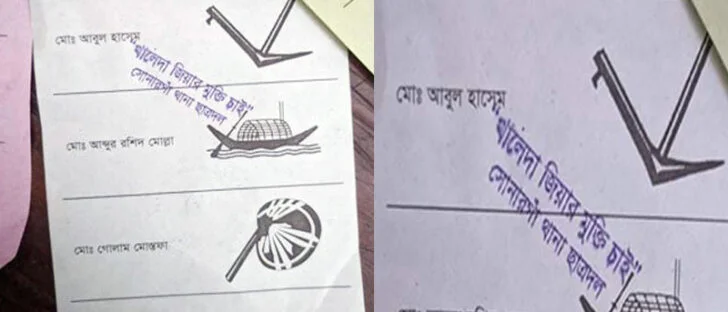 মোঃ আবুল হাসেম
"খালেদা জিয়ার মুক্তি চাই"
সোনারগাঁ থানা ছাত্রদল
মোঃ আব্দুর রশিদ মোল্লা
মোঃ গোলাম মোস্তফা
মোঃ আবুল হাসেম
"খালেদা জিয়ার মুক্তি চাই"
সোনারগাঁ থানা ছাত্রদল